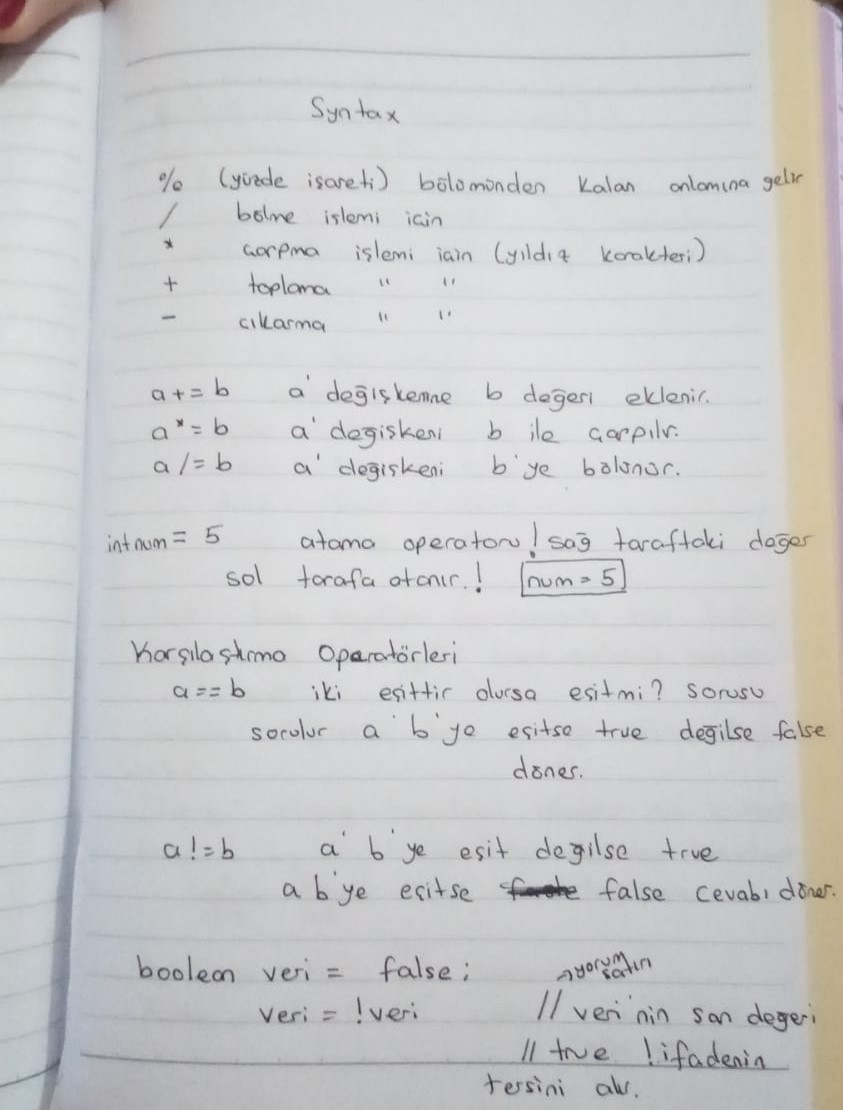 Syntax
% (yüzde isareti) bölümünden kalan anlamına gelir
/ bölme islemi icin
* çarpma işlemi için (yıldız karakteri)
+ toplama " "
- cıkarma " "
a += b a' değişkenne b değeri eklenir.
a *= b a' degiskeni b ile çarpılır.
a /= b a' değiskeni b'ye bölünür.
int num = 5 atama operatoru! sağ taraftaki değer
sol tarafa atanır.! num = 5
Karşılaştırma Operatörleri
a == b iki eşittir olursa eşitmi? sorusu
sorulur a' b'ye eşitse true değilse false
döner.
a != b a' b'ye esit degilse true
a b'ye eşitse false cevabı döner.
boolean veri = false;
yorum satırı
veri = !veri // veri'nin son degeri
// true ! ifadenin
tersini alır.